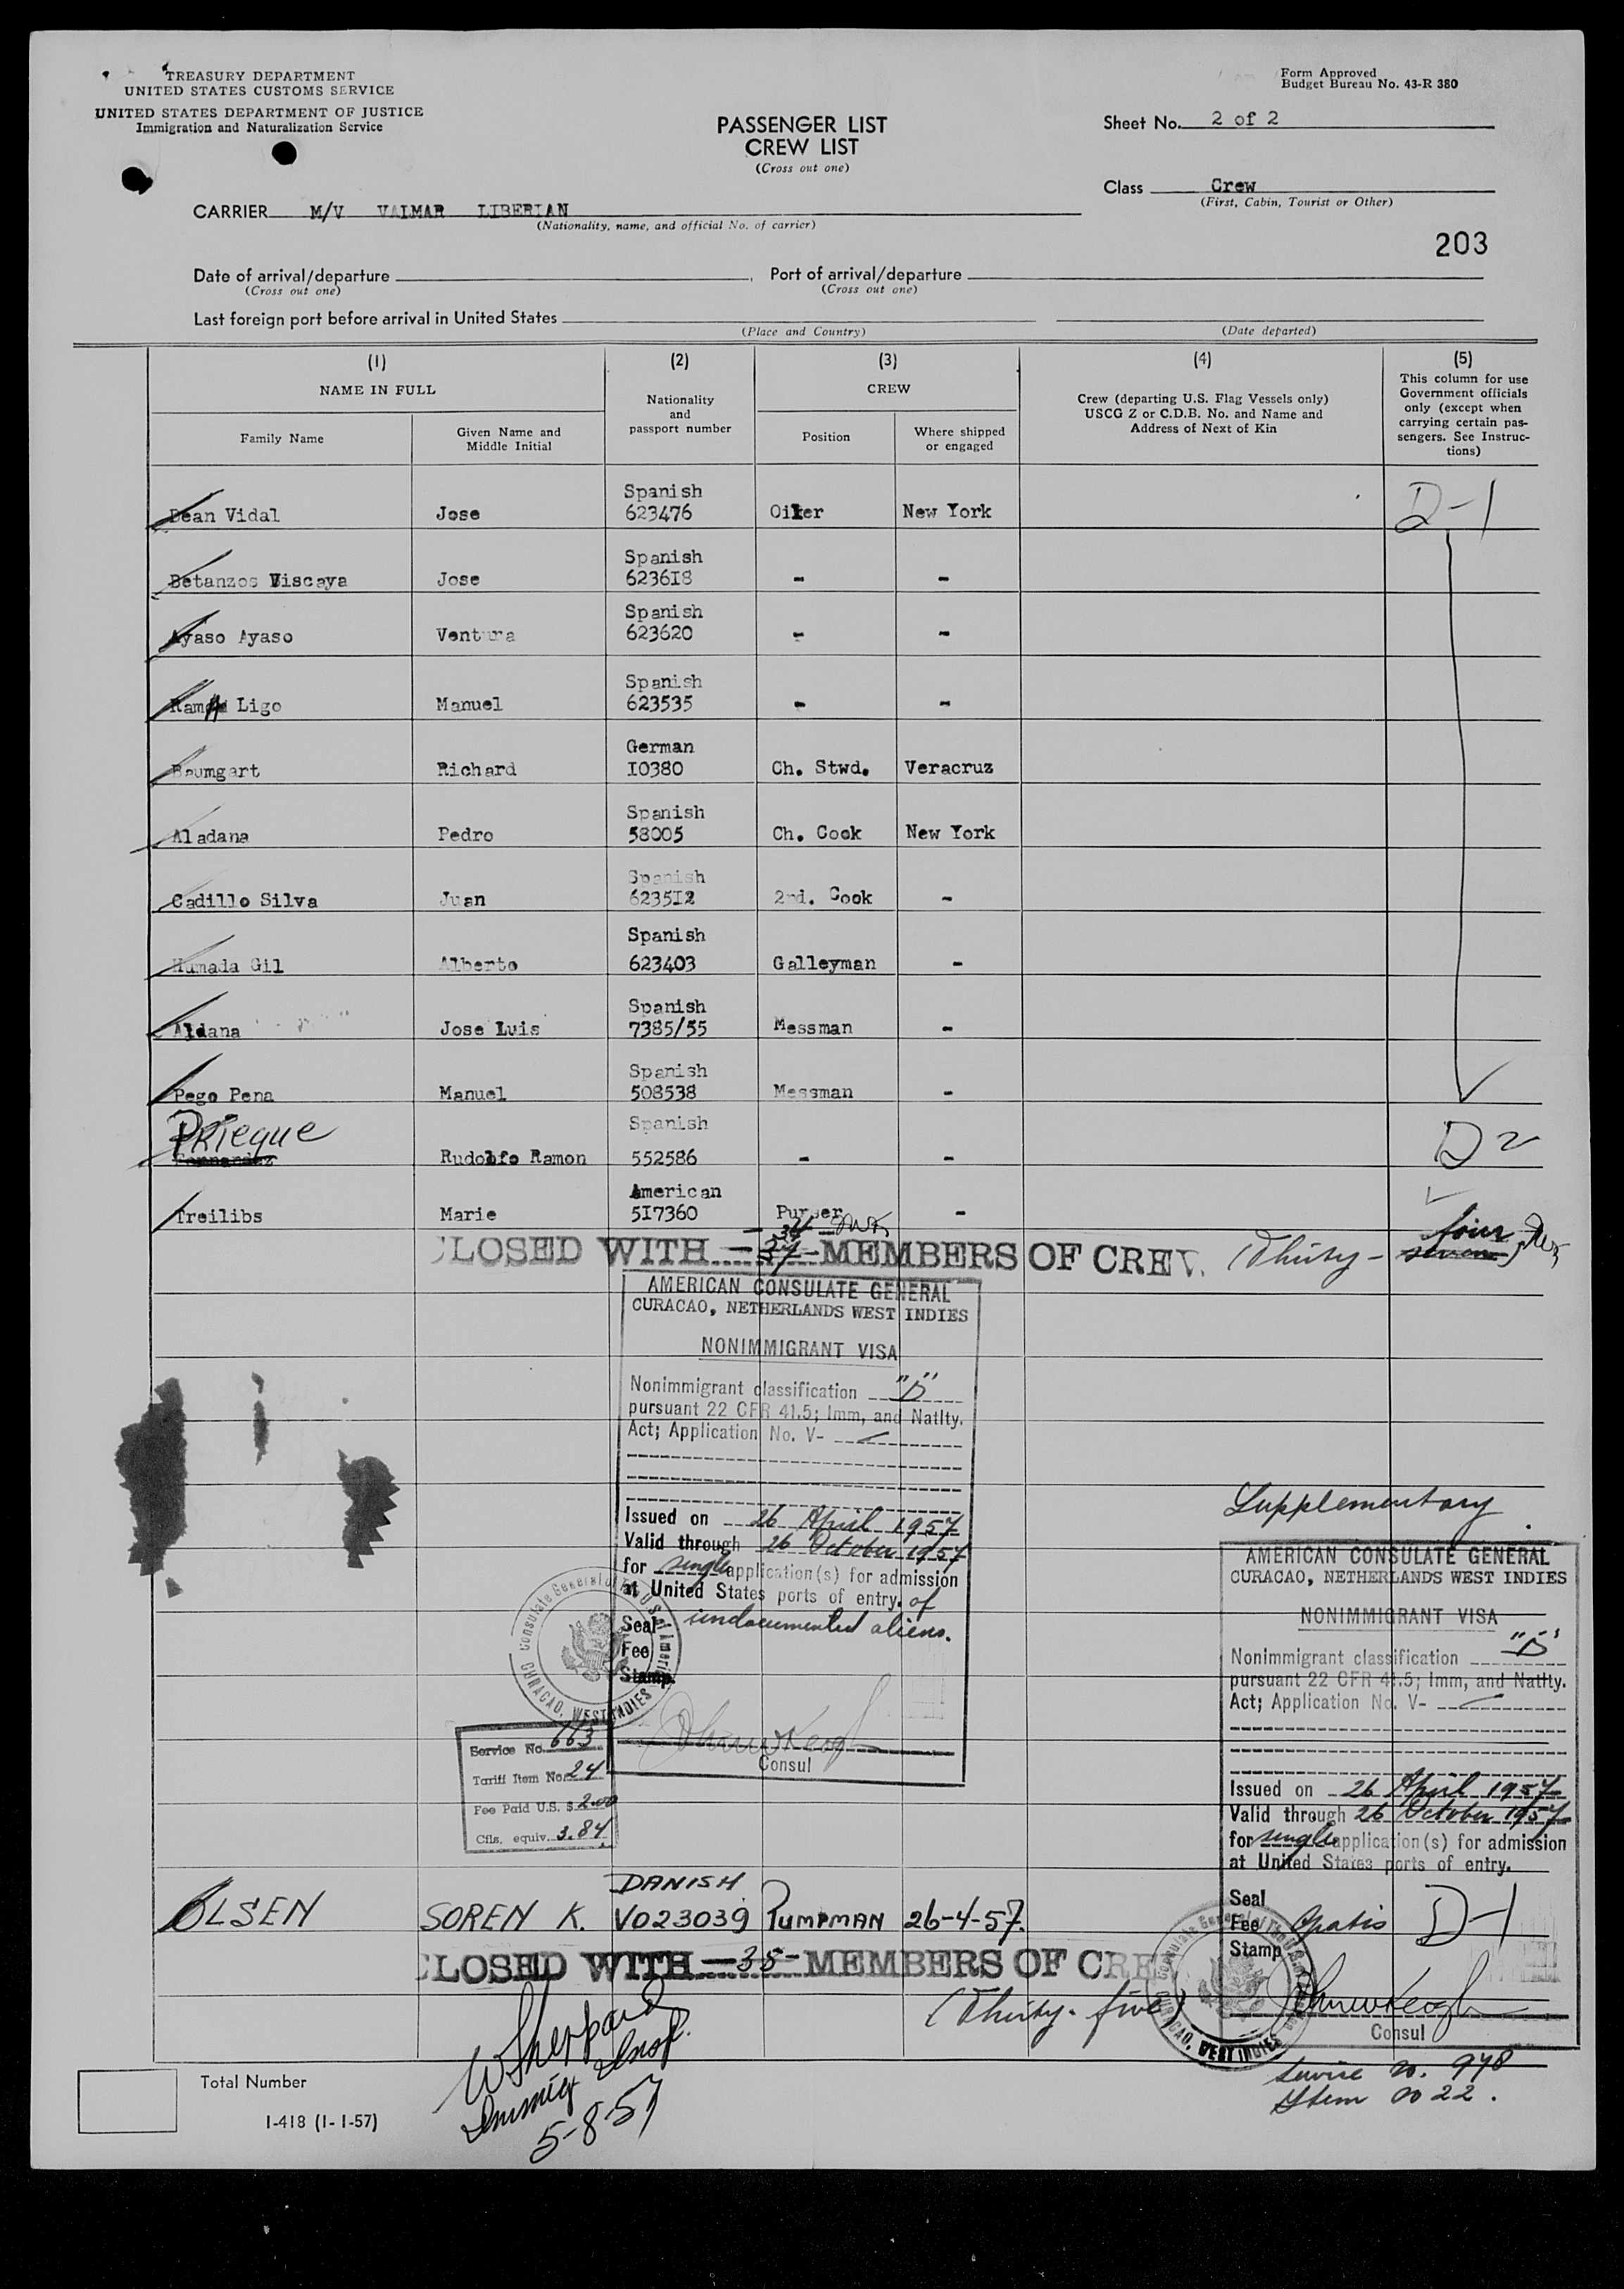 TREASURY DEPARTMENT
UNITED STATES CUSTOMS SERVICE
UNITED STATES DEPARTMENT OF JUSTICE
Immigration and Naturalization Service
Form Approved
Budget Bureau No. 43-R 380
PASSENGER LIST
CREW LIST
(Cross out one)
Sheet No. 2 of 2
Class Crew
(First, Cabin, Tourist or Other)
CARRIER M/V VALMAR LIBERIAN
(Nationality, name, and official No. of carrier)
203
Date of arrival/departure
(Cross out one)
Port of arrival/departure
(Cross out one)
Last foreign port before arrival in United States
(Place and Country)
(Date departed)
(1)
NAME IN FULL
Family Name
Given Name and
Middle Initial
(2)
Nationality
and
passport number
(3)
CREW
Position
Where shipped
or engaged
(4)
Crew (departing U.S. Flag Vessels only)
USCG Z or C.D.B. No. and Name and
Address of Next of Kin
(5)
This column for use
Government officials
only (except when
carrying certain pas-
sengers. See Instruc-
tions)
Spanish
Dean Vidal Jose 623476 Oiler New York D-1
Spanish
Betanzos Viscaya Jose 6236I8 - -
Spanish
Ayaso Ayaso Ventura 623620 - -
Spanish
Ligo Manuel 623535 - -
German
Baumgart Richard I0380 Ch. Stwd. Veracruz
Spanish
Aladana Pedro 58005 Ch. Cook New York
Spanish
Cadillo Silva Juan 6235I2 2nd. Cook -
Spanish
Humada Gil Alberto 623403 Galleyman -
Spanish
Aldana Jose Luis 7385/55 Messman -
Spanish
Pego Pena Manuel 508538 Messman -
PRIEQUE Spanish D2
Fernandez Rudolfo Ramon 552586 - -
American
Treilibs Marie 5I7360 Purser -
CLOSED WITH - 34 - MEMBERS OF CREW. (Thirty - four
seven
AMERICAN CONSULATE GENERAL
CURACAO, NETHERLANDS WEST INDIES
NONIMMIGRANT VISA
Nonimmigrant classification "D"
pursuant 22 CFR 41.5; Imm, and Natlty.
Act; Application No. V-
Issued on 26 April 1957
Valid through 26 October 1957
for single application(s) for admission
at United States ports of entry. of
undocumented aliens.
Seal
Fee
Stamp
Consul
CURACAO, WEST INDIES
Service No. 663
Tariff Item No. 24
Fee Paid U.S. $ 2.00
Cfls. equiv. 3.84
Supplementary
AMERICAN CONSULATE GENERAL
CURACAO, NETHERLANDS WEST INDIES
NONIMMIGRANT VISA
Nonimmigrant classification "D"
pursuant 22 CFR 41.5; Imm, and Natlty.
Act; Application No. V-
Issued on 26 April 1957
Valid through 26 October 1957
for single application(s) for admission
at United States ports of entry.
Seal
Fee Gratis D-1
Stamp
Consul
CURACAO, WEST INDIES
DANISH
OLSEN SOREN K. V023039 PUMPMAN 26-4-57.
CLOSED WITH -35- MEMBERS OF CRE
(Thirty-five)
W Sheppard
Immig Insp.
5-8-57
Service no. 978
Item no 22.
Total Number
I-418 (1-1-57)